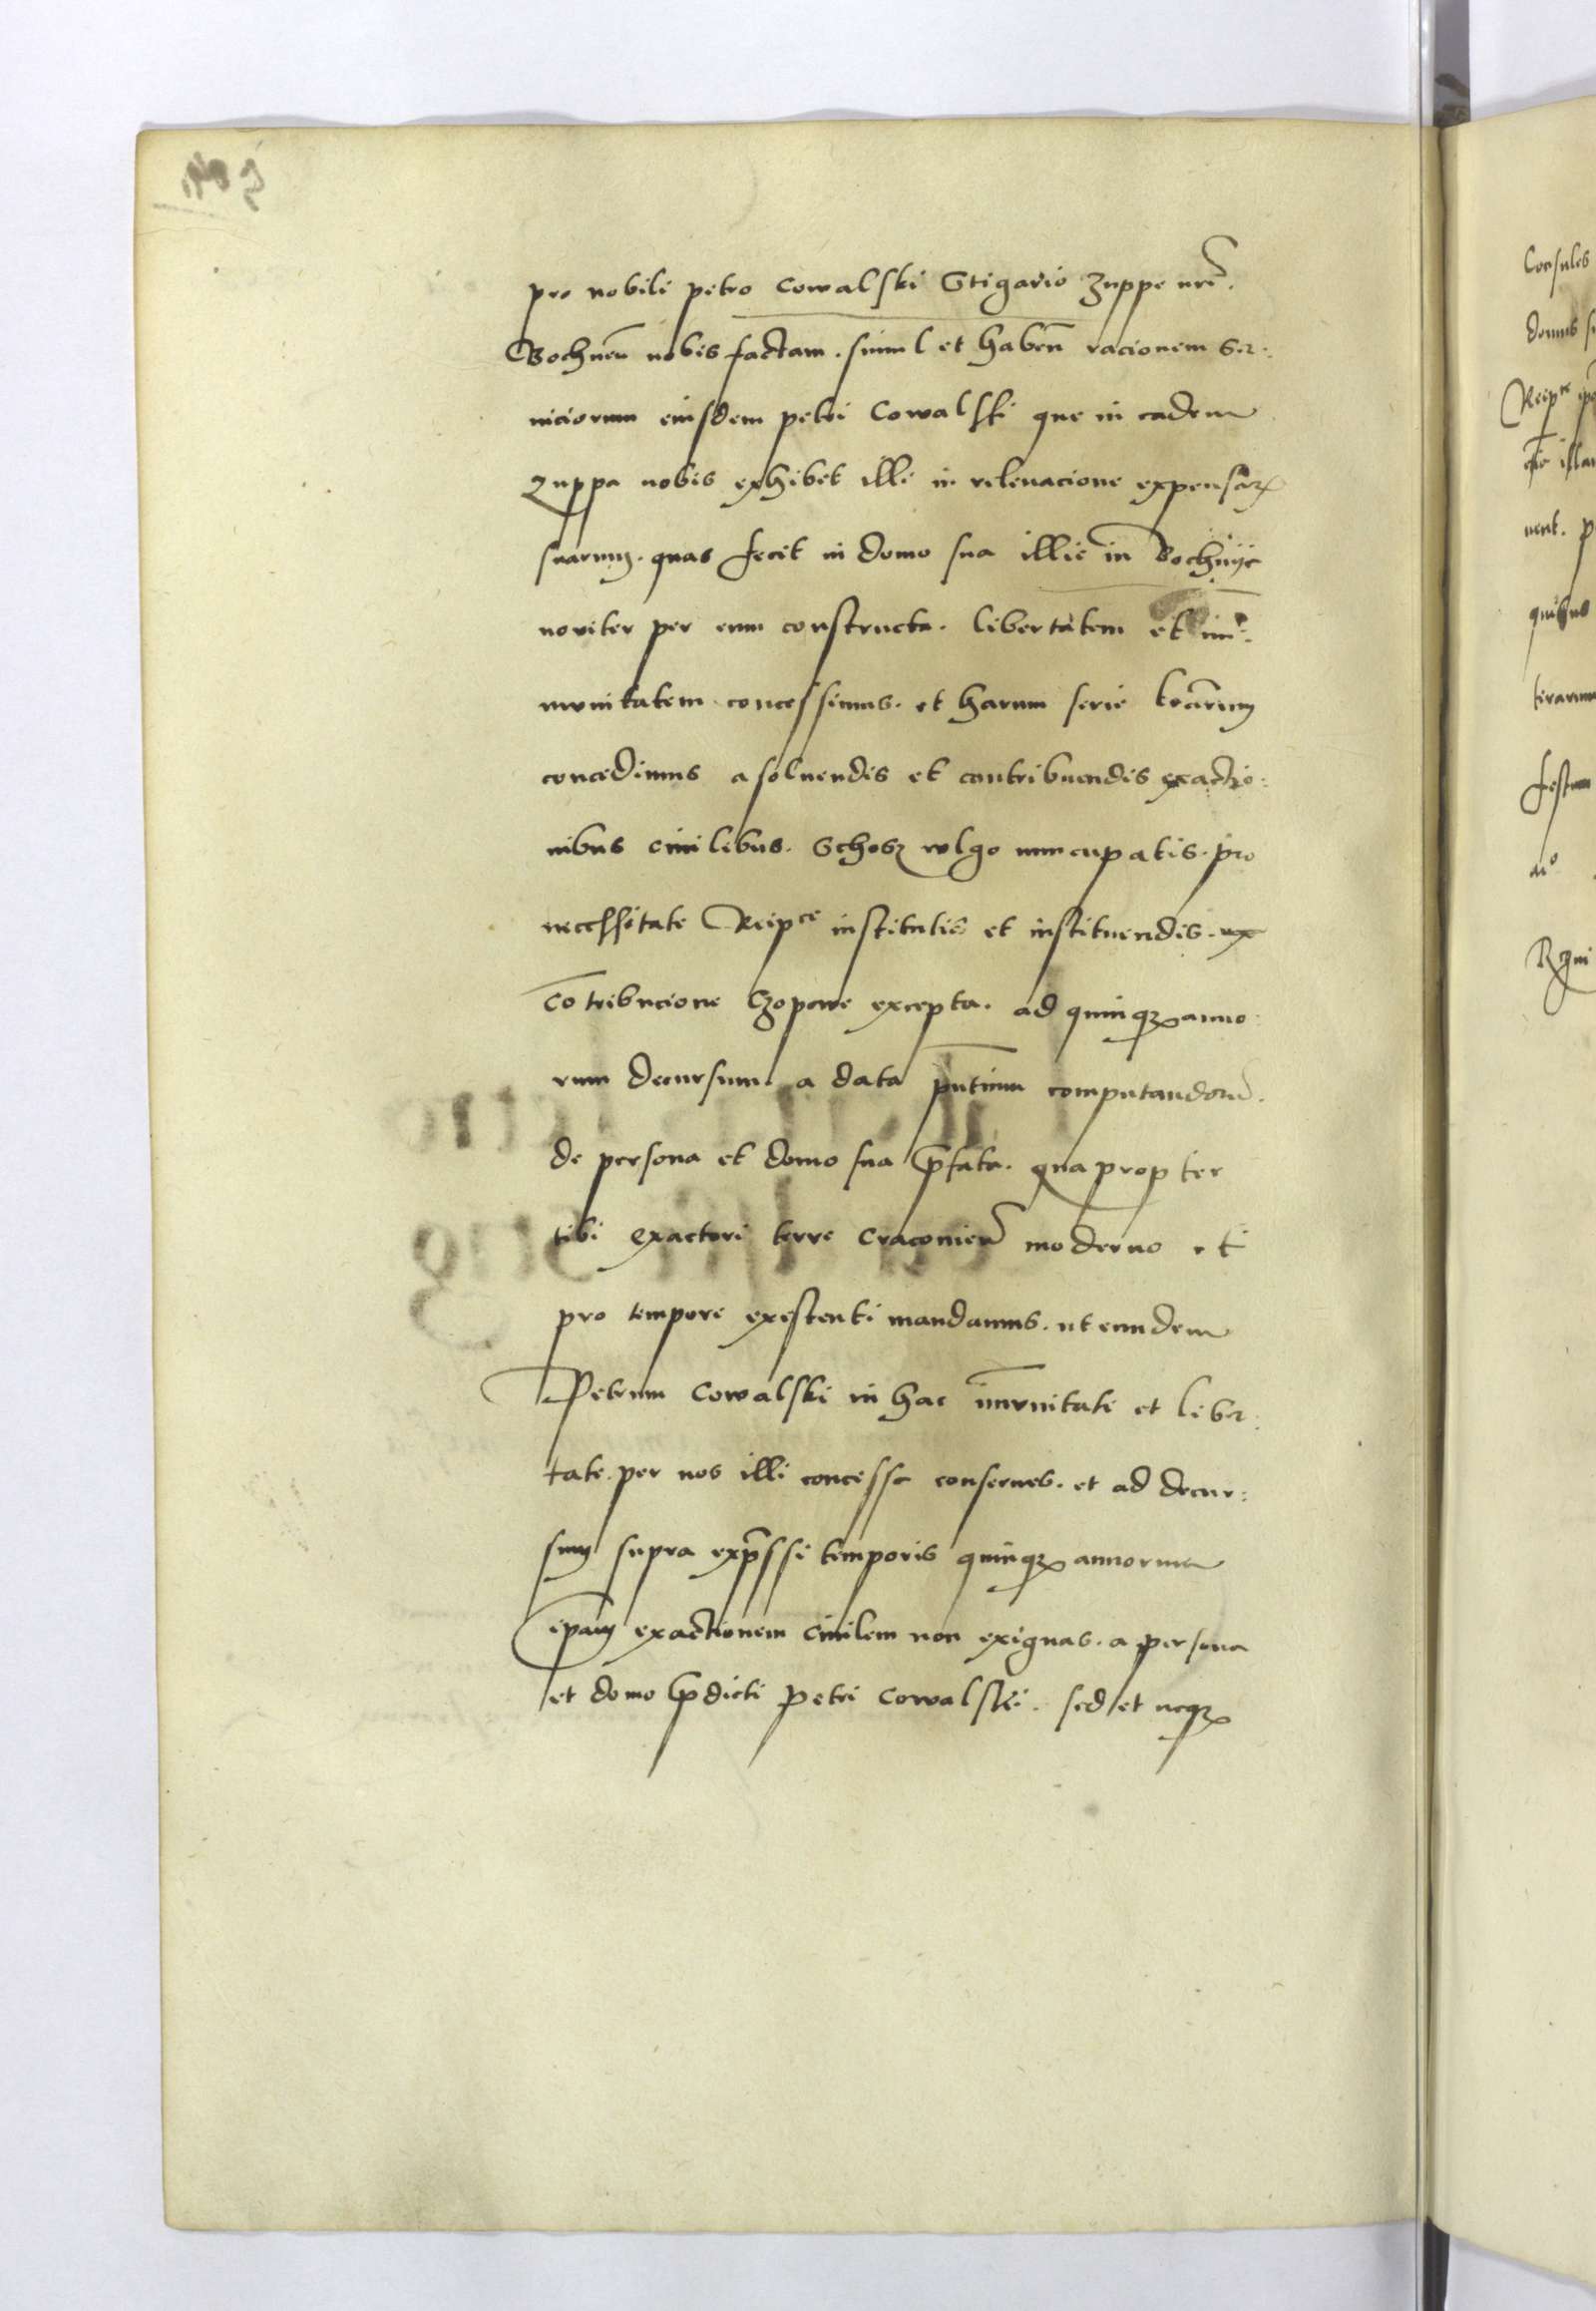 pro nobili petro Cowalski Stigario Zuppe nrē.
Bochnen̄ nobis factam. simul et haben̄ racionem Ser:
uiciorum eiusdem petri Cowalski que in eadem
Zuppa nobis exhibet illi in releuacione expensarꝝ
suarum. quas fecit in domo sua illic in Bochnijc
noviter per eum constructa. libertatem et im:
munitatem concessimus. et harum serie lrārum
concedimus a soluendis et contribuendis exactio:
nibus ciuilibus. Schosz wlgo nuncupatis. pro
necessitate Reipce institutis et instituendis.
Cōtribucione Czopowe excepta. ad quinqꝫ anno:
rum decursum a data pn̄tium computandorū.
de persona et domo sua p̄fata. qua propter
tibi exactori terre Cracouien̄ moderno et
pro tempore existenti mandamus. ut eundem
Petrum Cowalski in hac im̄unitate et liber:
tate. per nos illi concesse conserues. et ad decur:
sum supra exp̄ssi temporis quinqꝫ annorum
ipam exactionem ciuilem non exignas. a persona
et domo p̄dicti Petri Cowalski. sed et neqꝫ
Consules
domus
Reipce
nent. p
quibus
festum
Regni